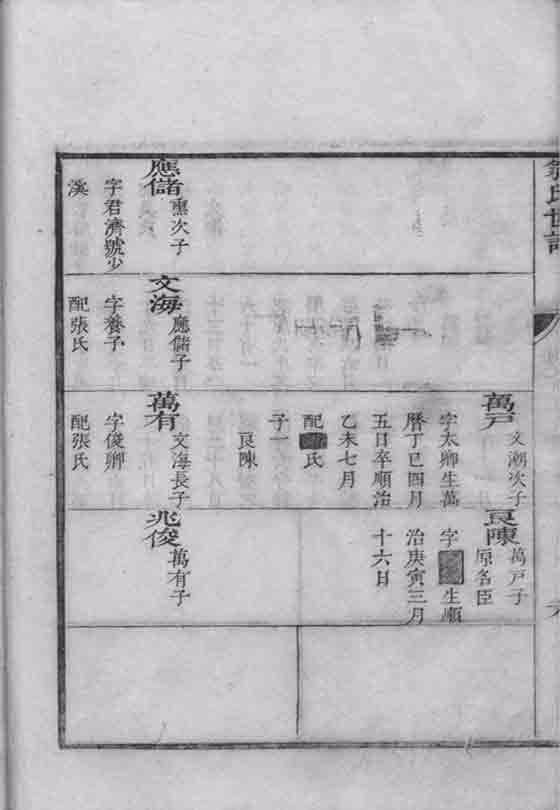 氏世譜
萬戸
文潮次子
字太卿生萬
曆丁巳四月
五日卒順治
乙未七月
配 氏
子一
良陳
良陳
萬戸子
原名臣
字 生順
治庚寅三月
十六日
應儲
次子
字君濟號少
溪
文海
應儲子
字養予
配張氏
萬有
文海長子
字俊卿
配張氏
兆俊
萬有子